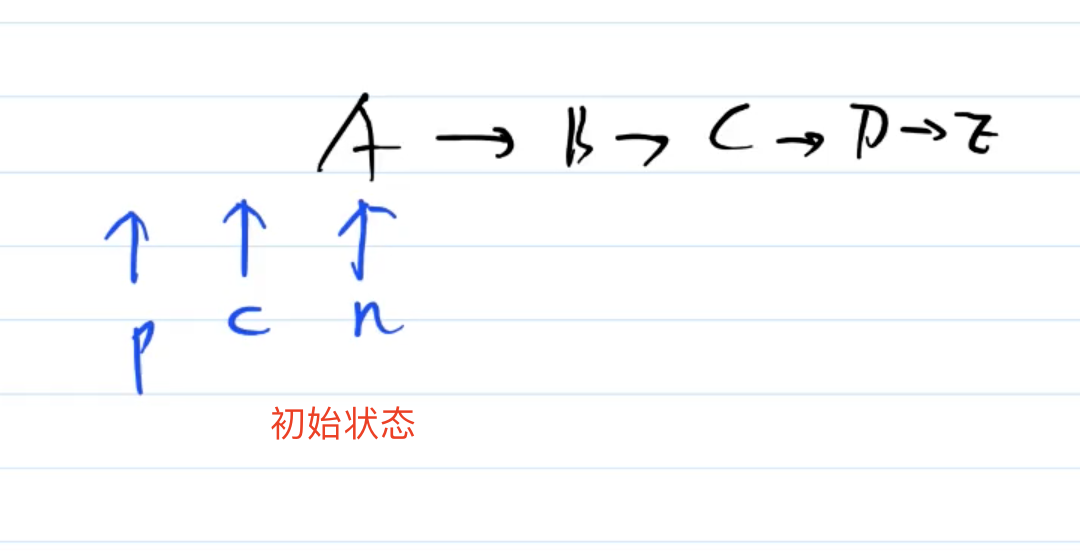 A → B → C → D → E
p c n
初始状态